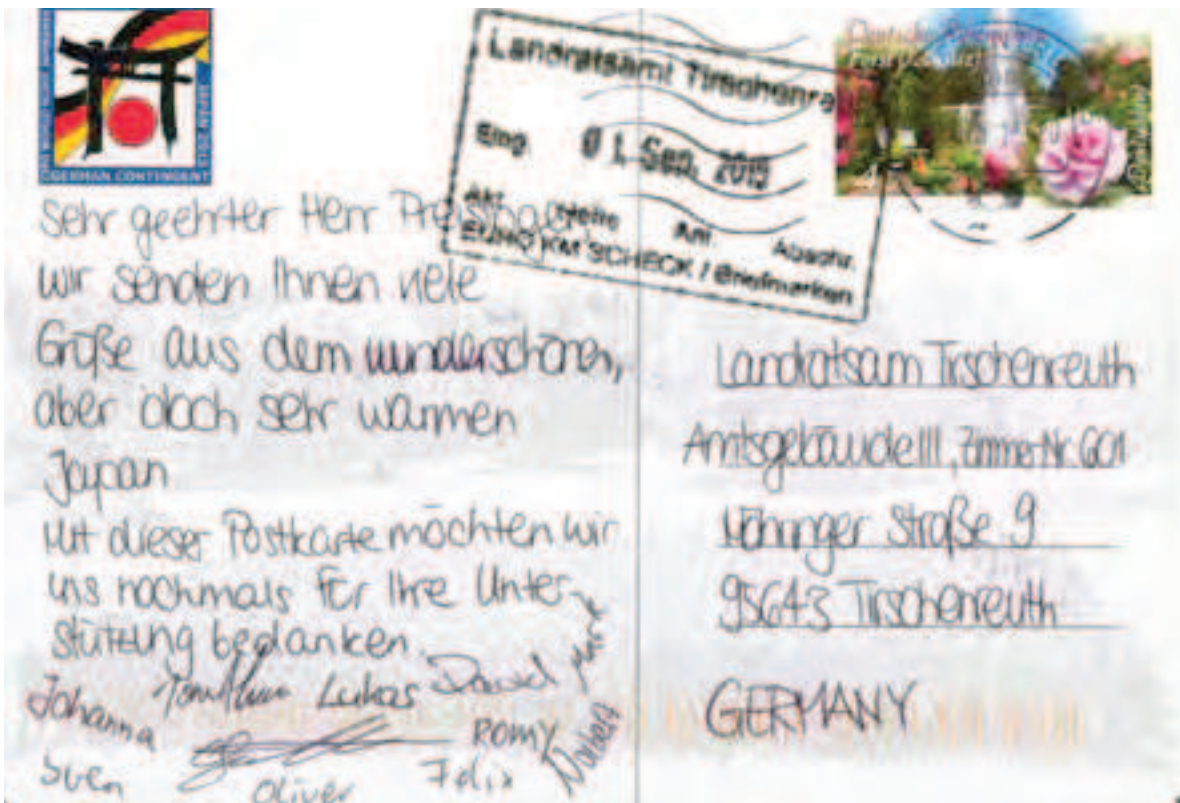 GERMAN CONTINGENT
Landratsamt Tirschenre
Eing. 01. Sep. 2015
Anl. Abschr.
SCHECK / Briefmarken
Sehr geehrter Herr
wir senden Ihnen viele
Grüße aus dem wunderschönen,
aber doch sehr warmen
Japan
Mit dieser Postkarte möchten wir
uns nochmals für Ihre Unter-
stützung bedanken.
Johanna Lukas David
Romy
Sven Oliver Felix
Landratsam Tirschenreuth
Amtsgebäude III, Zimmer Nr. 601
Mähringer Straße 9
95643 Tirschenreuth
GERMANY